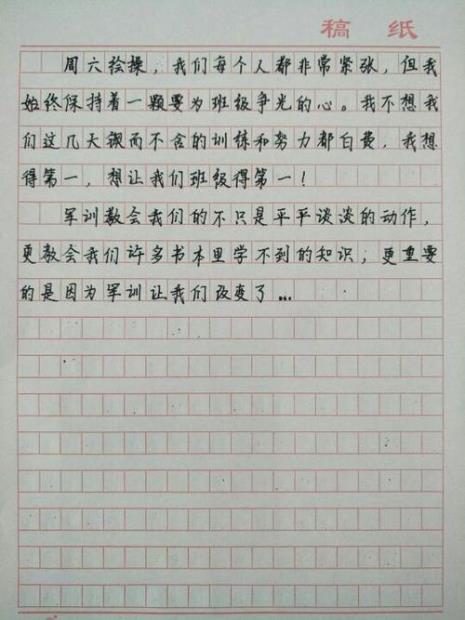 稿 纸
周六检操，我们每个人都非常紧张，但我
始终保持着一颗要为班级争光的心。我不想我
们这几天锲而不舍的训练和努力都白费，我想
得第一，想让我们班级得第一！
军训教会我们的不只是平平谈谈的动作，
更教会我们许多书本里学不到的知识；更重要
的是因为军训让我们改变了...